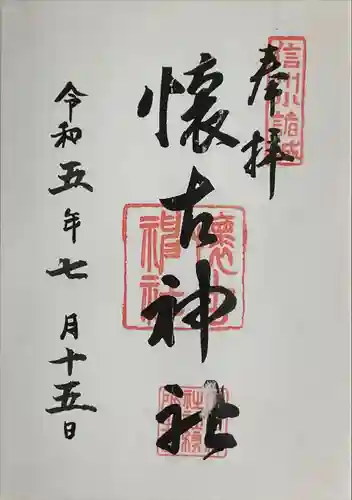 奉拝
信州小諸城
懐古神社
懐古神社
令和五年七月十五日